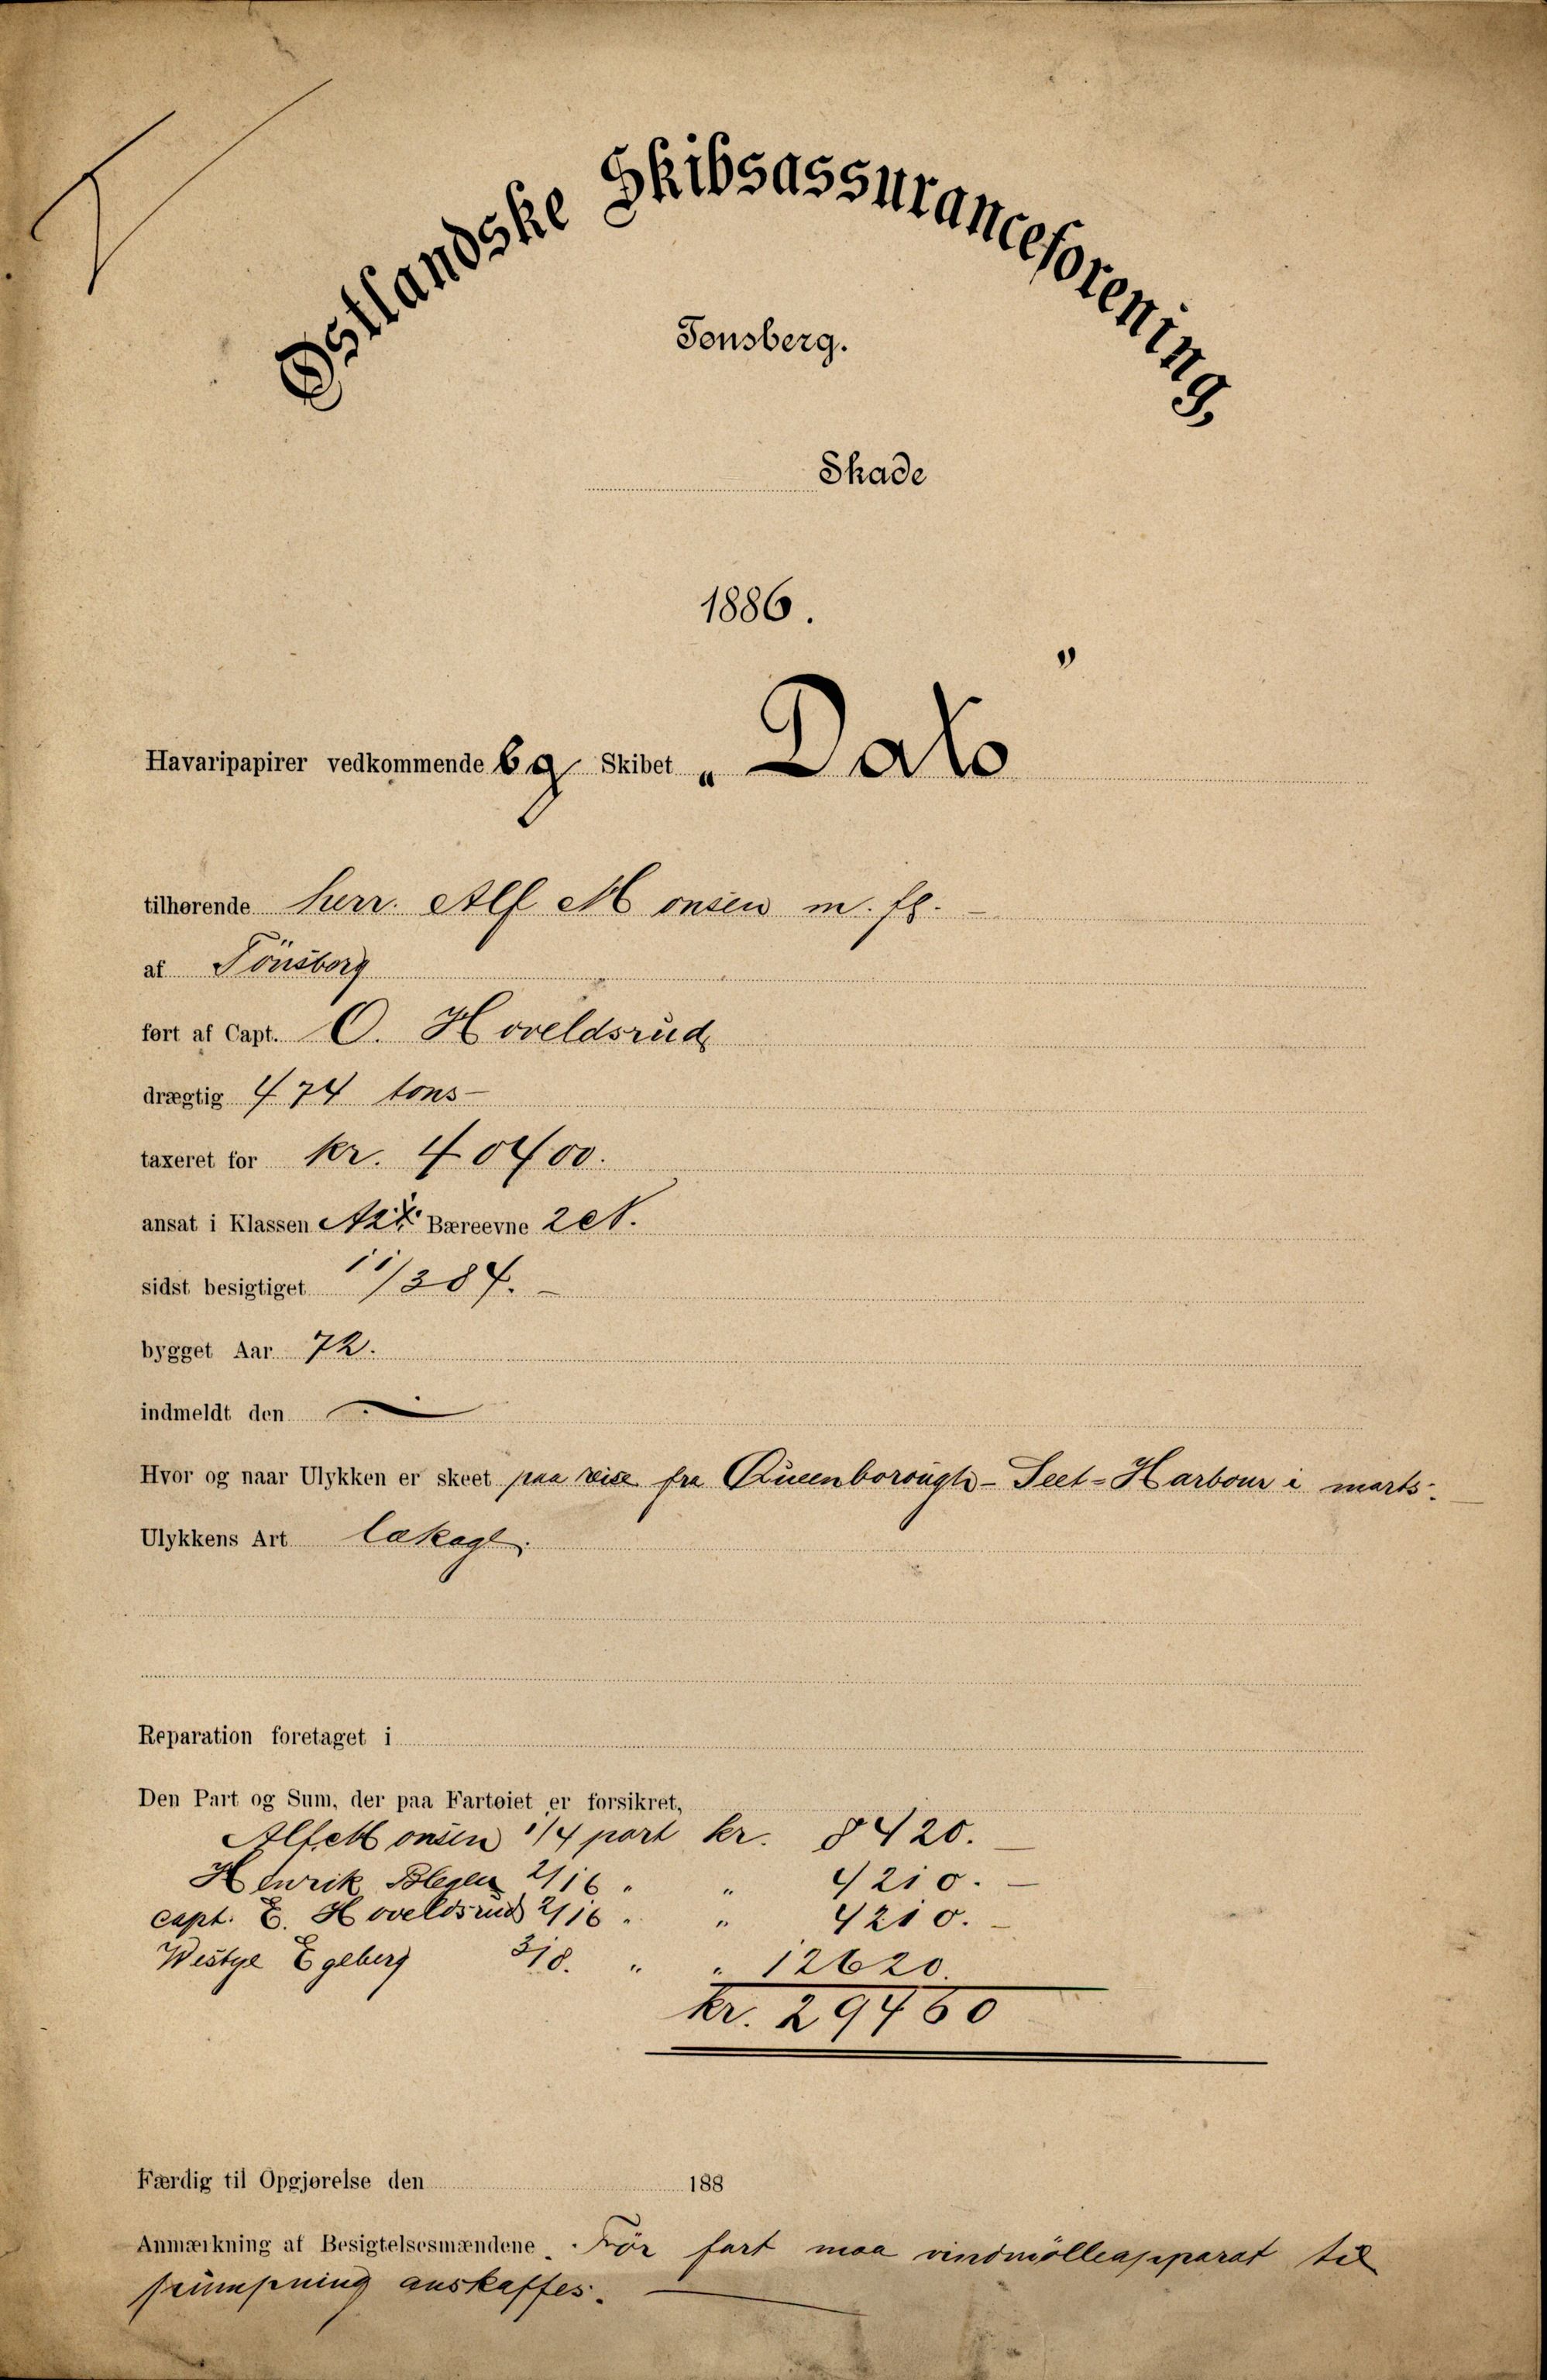 Østlandske Skibsassuranceforening,
Tønsberg.
Skade
1886.
Havaripapirer vedkommende bg Skibet „Dato”
tilhørende herr. Alf Monsen m. fl. –
af Tönsberg
ført af Capt. O. Hoveldsrud
drægtig 474 tons –
taxeret for kr. 40400.
ansat i Klassen Bæreevne
sidst besigtiget 11/3 84. –
bygget Aar 72.
indmeldt den
Hvor og naar Ulykken er skeet paa reise fra Queenborough - Harbour i marts.
Ulykkens Art lækage.
Reparation foretaget i
Den Part og Sum, der paa Fartøiet er forsikret,
Alf Monsen 1/4 part kr. 8420. –
Henrik 2/16 " " 4210. –
capt. Hoveldsrud 2/16 " " 4210. –
Westye Egeberg 3/8. " " 12620.
kr. 29460
Færdig til Opgjørelse den 188
Anmærkning af Besigtelsesmændene. För fart maa vindmölleapparat til
pumpning anskaffes. –